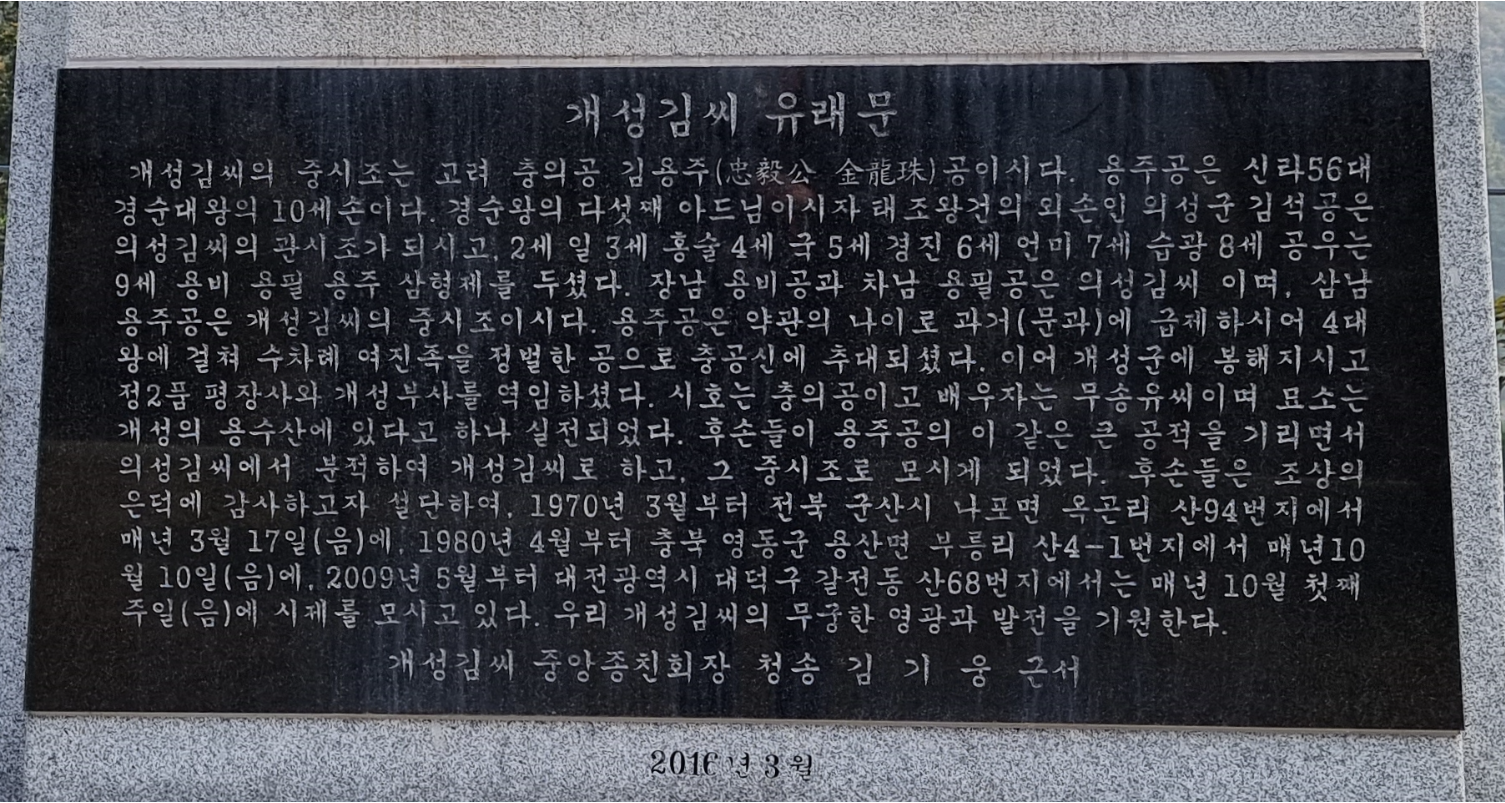 개성김씨 유래문
개성김씨의 중시조는 고려 충의공 김용주(忠毅公 金龍珠)공이시다. 용주공은 신라56대
경순대왕의 10세손이다. 경순왕의 다섯째 아드님이시자 태조왕건의 외손인 의성군 김석공은
의성김씨의 관시조가 되시고, 2세 일 3세 홍술 4세 국 5세 경진 6세 언미 7세 습광 8세 공우는
9세 용비 용필 용주 삼형제를 두셨다. 장남 용비공과 차남 용필공은 의성김씨 이며, 삼남
용주공은 개성김씨의 중시조이시다. 용주공은 약관의 나이로 과거(문과)에 급제하시어 4대
왕에 걸쳐 수차례 여진족을 정벌한 공으로 충공신에 추대되셨다. 이어 개성군에 봉해지시고
정2품 평장사와 개성부사를 역임하셨다. 시호는 충의공이고 배우자는 무송유씨이며 묘소는
개성의 용수산에 있다고 하나 실전되었다. 후손들이 용주공의 이 같은 큰 공적을 기리면서
의성김씨에서 분적하여 개성김씨로 하고, 그 중시조로 모시게 되었다. 후손들은 조상의
은덕에 감사하고자 설단하여, 1970년 3월부터 전북 군산시 나포면 옥곤리 산94번지에서
매년 3월 17일(음)에, 1980년 4월부터 충북 영동군 용산면 부릉리 산4-1번지에서 매년10
월 10일(음)에, 2009년 5월부터 대전광역시 대덕구 갈전동 산68번지에서는 매년 10월 첫째
주일(음)에 시제를 모시고 있다. 우리 개성김씨의 무궁한 영광과 발전을 기원한다.
개성김씨 중앙종친회장 청송 김 기 웅 근서
2016년 3월